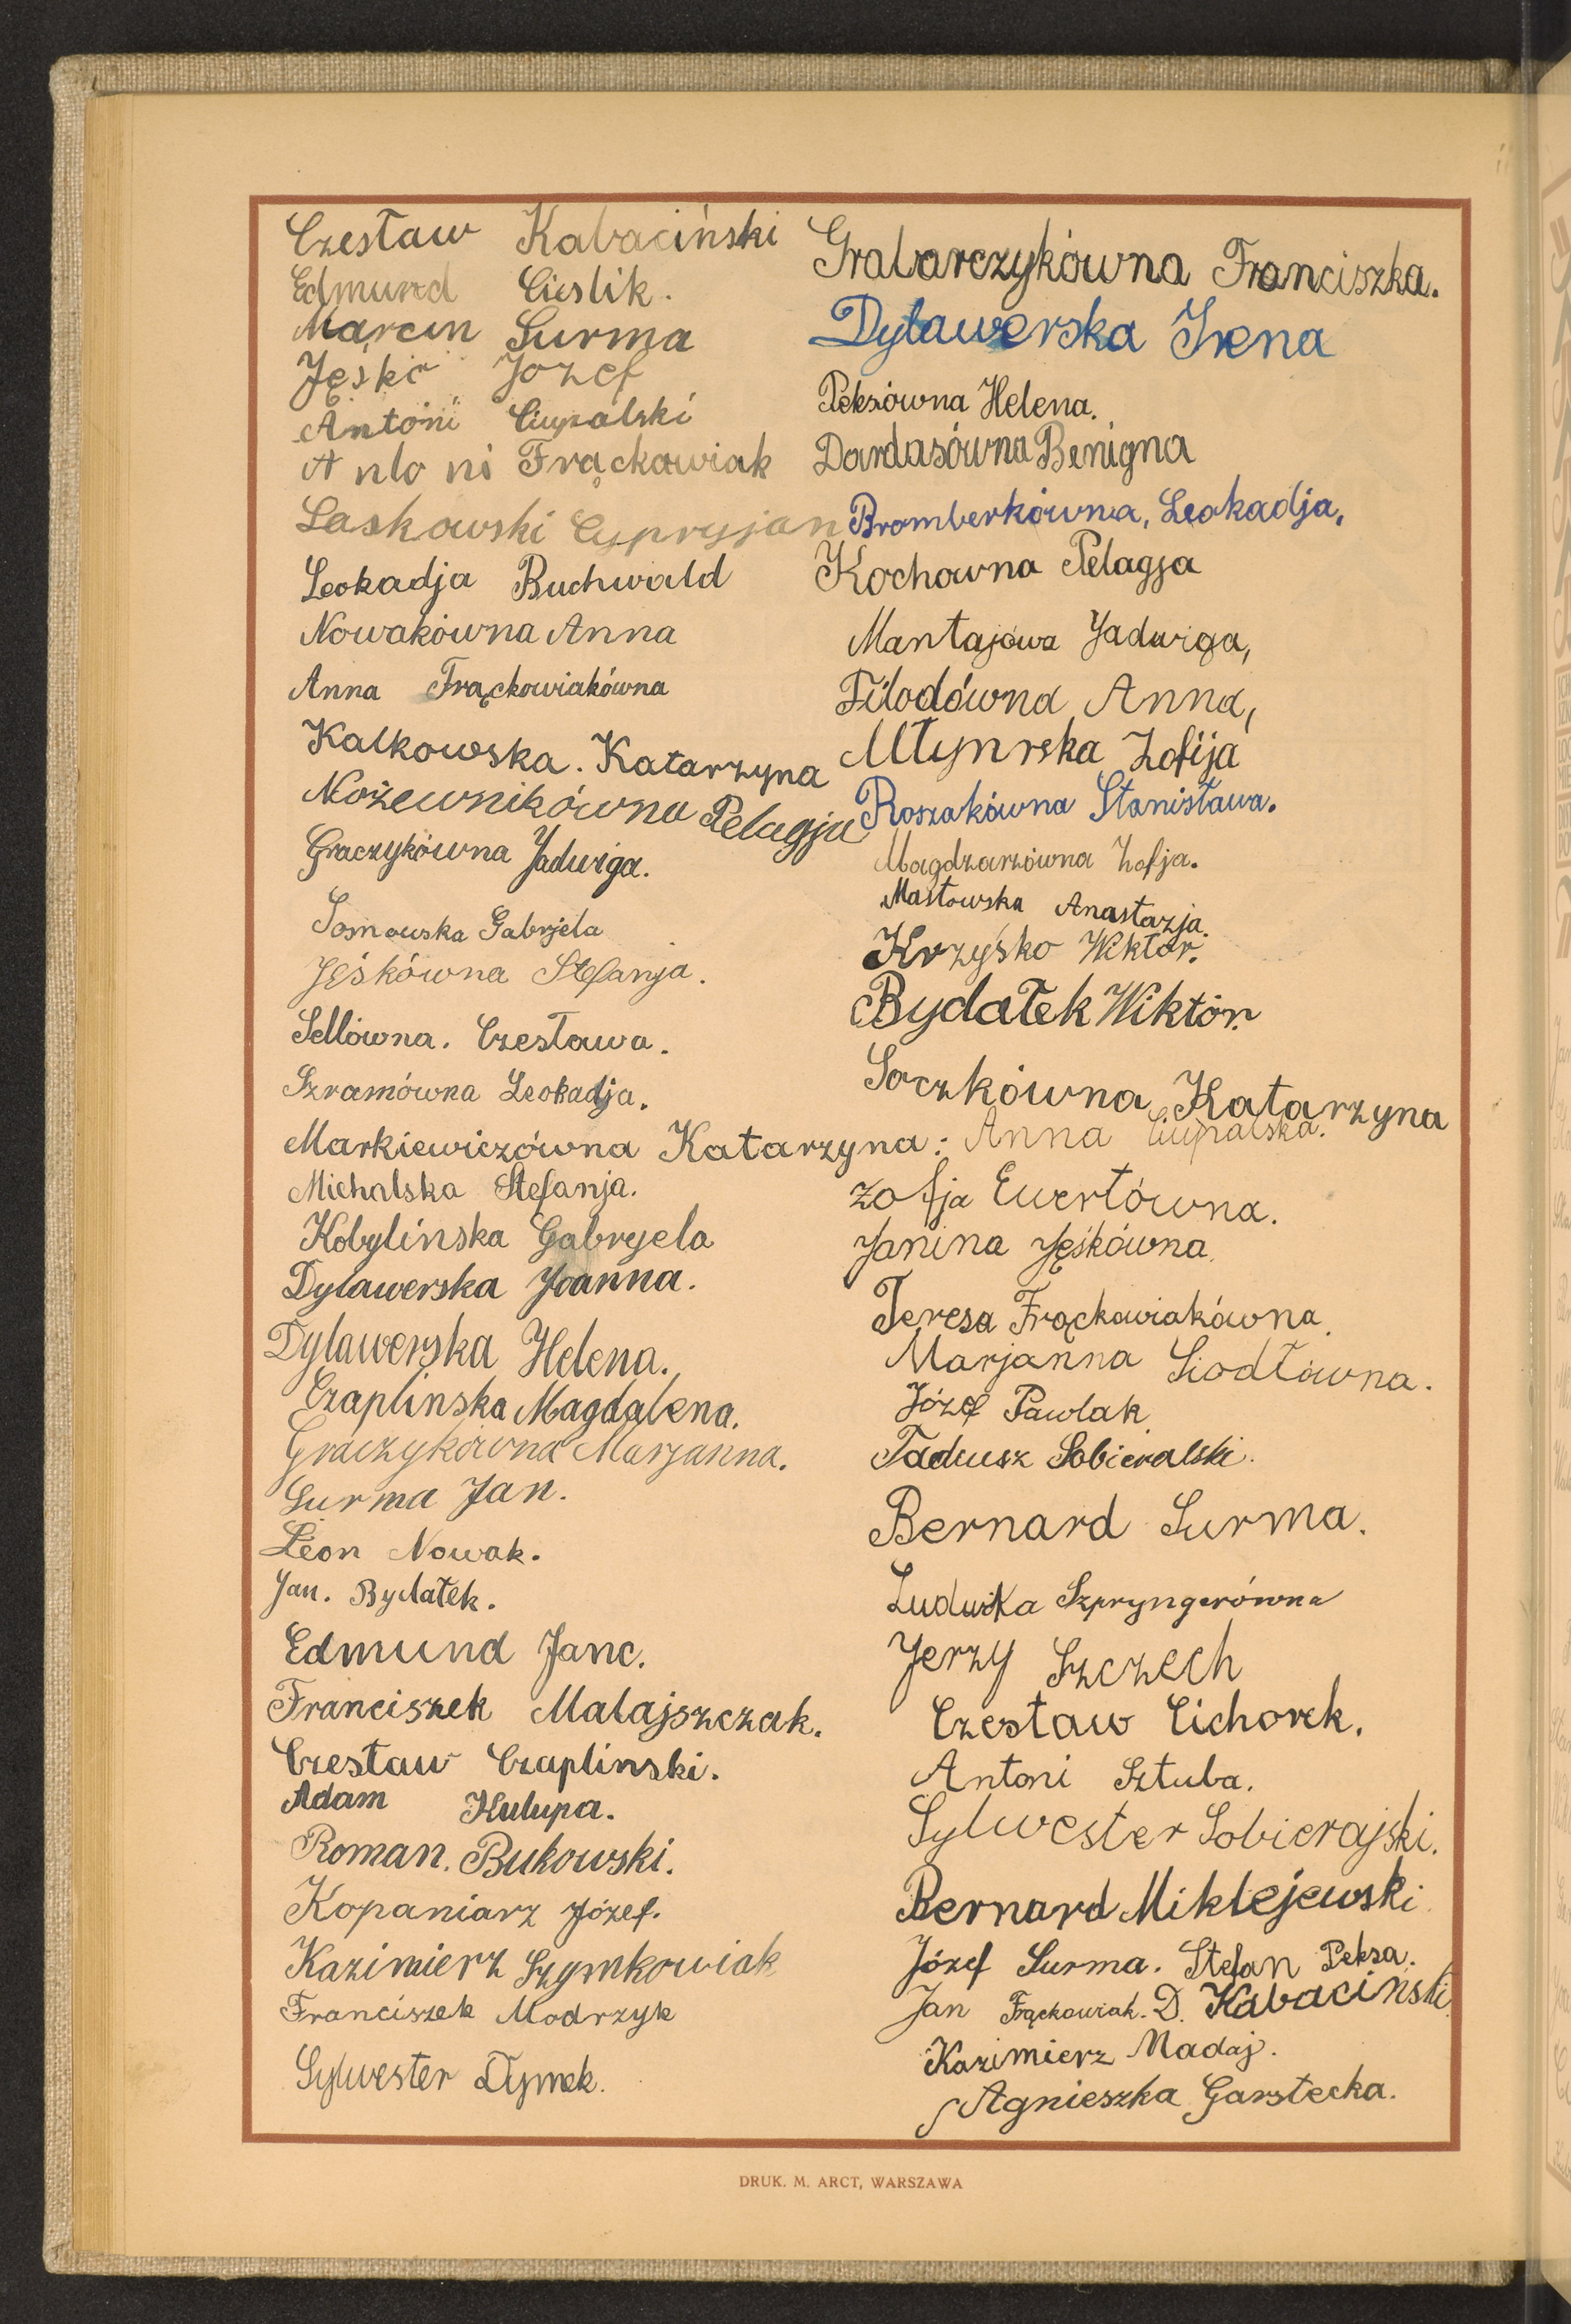 Czesław Kabaciński
Edmund Cieslik.
Marcin Surma
Jęśko Jozef
Antoni Ciupalski
Antoni Frąckowiak
Laskowski Cypryjan
Leokadja Buchwald
Nowakówna Anna
Anna Frąckowiakówna
Kalkowska. Katarzyna
Nożewnikówna Pelagja
Graczykówna Jadwiga.
Sosnowska Gabrjela
Jęśkówna Stefanja.
Sellówna. Czesława.
Szramówna Leokadja.
Markiewiczówna Katarzyna.
Michalska Stefanja.
Kobylińska Gabryela
Dylawerska Joanna.
Dylawerska Helena.
Czaplinska Magdalena.
Graczykówna Marjanna.
Surma Jan.
Leon Nowak.
Jan. Bydałek.
Edmund Janc.
Franciszek Matajszczak.
Czesław Czaplinski.
Adam Kulupa.
Roman. Bukowski.
Kopaniarz Józef.
Kazimierz Szymkowiak
Franciszek Modrzyk
Sylwester Dymek.
Grabarczykówna Franciszka.
Dylawerska Irena
Peksówna Helena.
Dardasówna Benigna
Bromberkówna, Leokadja,
Kochowna Pelagja
Mantajówa Jadwiga,
Filodówna Anna,
Młynrska Zofija
Roszakówna Stanisława.
Magdzarzówna Zofja.
Masłowska Anastazja.
Krzyśko Wiktor.
Bydałek Wiktor.
Soczkówna Katarzyna
Anna Ciupalska.
Zofja Ewertówna.
Janina Jęśkówna.
Teresa Frąckowiakówna.
Marjanna Siodłówna.
Józef Pawlak
Tadeusz Sobieralski.
Bernard Surma.
Ludwika Szpryngerówna
Jerzy Szczech
Czesław Cichorek.
Antoni Sztuba.
Sylwester Sobierajski.
Bernard Miklejewski.
Józef Surma. Stefan Peksa.
Jan Frąckowiak. D. Kabaciński.
Kazimierz Madaj.
Agnieszka Garstecka.
DRUK. M. ARCT, WARSZAWA